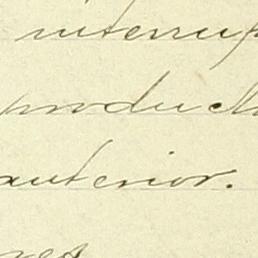 interrup
producti
anterior.
nes